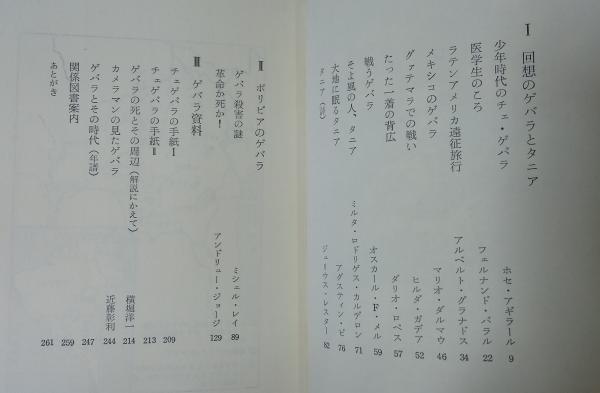 I 回想のゲバラとタニア
少年時代のチェ・ゲバラ ホセ・アギラール 9
医学生のころ フェルナンド・バラル 22
ラテンアメリカ遠征旅行 アルベルト・グラナドス 34
メキシコのゲバラ マリオ・ダルマウ 46
グァテマラでの戦い ヒルダ・ガデア 52
たった一着の背広 ダリオ・ロペス 57
戦うゲバラ オスカール・F・メル 59
そよ風の人、タニア ミルタ・ロドリゲス・カルデロン 71
大地に眠るタニア アグスティン・ピ 76
タニア(詩) ジュリウス・レスター 82
II ボリビアのゲバラ
ゲバラ殺害の謎 ミシェル・レイ 89
革命か死か! アンドリュー・ジョージ 129
III ゲバラ資料
チェゲバラの手紙I 209
チェゲバラの手紙II 213
ゲバラの死とその周辺(解説にかえて) 横堀洋一 214
カメラマンの見たゲバラ 近藤彰利 244
ゲバラとその時代(年譜) 247
関係図書案内 259
あとがき 261